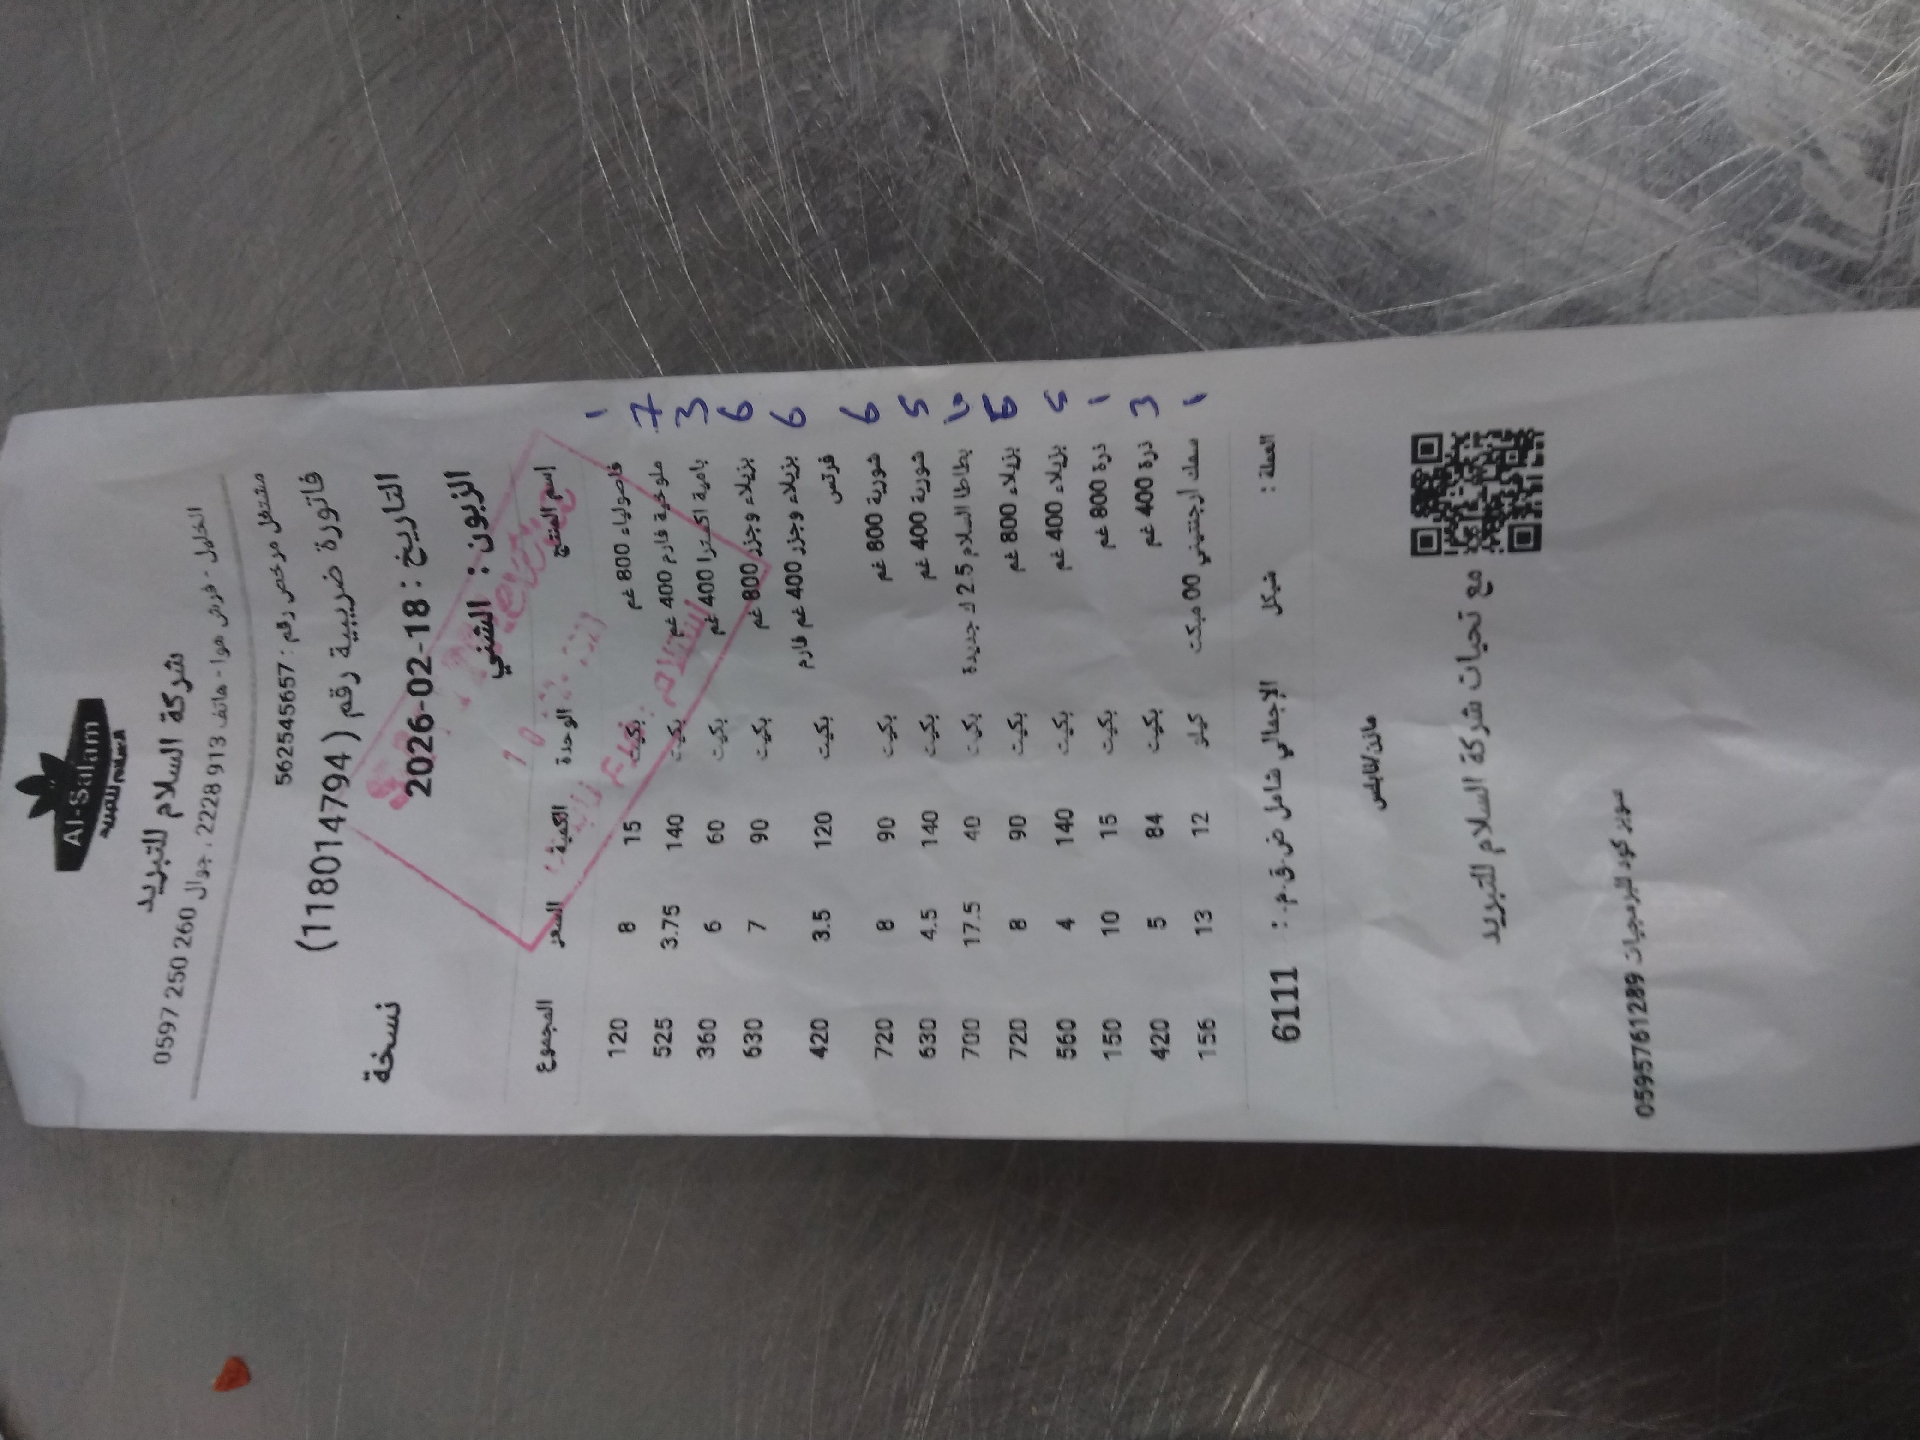 Al-Salam
السلام للتبريد
شركة السلام للتبريد
الخليل - فرش هوا - هاتف 913 2228 ، جوال 260 250 0597
مشتغل مرخص رقم : 562545657
فاتورة ضريبية رقم ( 118014794)
التاريخ : 18-02-2026 نسخة
الزبون : الشني
إسم المنتج الوحدة الكمية السعر المجموع
فاصولياء 800 غم بكيت 15 8 120 1
ملوخية فارم 400 غم بكيت 140 3.75 525 7
بامية اكسترا 400 غم بكيت 60 6 360 3
بزيلاء وجزر 800 غم بكيت 90 7 630 6
بزيلاء وجزر 400 غم فارم فرتس بكيت 120 3.5 420 6
شوربة 800 غم بكيت 90 8 720 6
شوربة 400 غم بكيت 140 4.5 630 5
بطاطا السلام 2.5 ك جديدة بكيت 40 17.5 700
بزيلاء 800 غم بكيت 90 8 720 6
بزيلاء 400 غم بكيت 140 4 560 5
ذرة 800 غم بكيت 15 10 150 1
ذرة 400 غم بكيت 84 5 420 3
سمك ارجنتيني 00 مبكت كيلو 12 13 156 1
العملة : شيكل الإجمالي شامل ض.ق.م. : 6111
مع تحيات شركة السلام للتبريد
سوبر كود للبرمجيات 0595761289